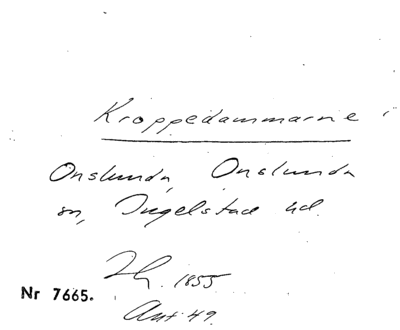 Kroppedammarne i
Onslunda, Onslunda
sn, Ingelstad hd.
1855
Nr 7665.
Ant 49